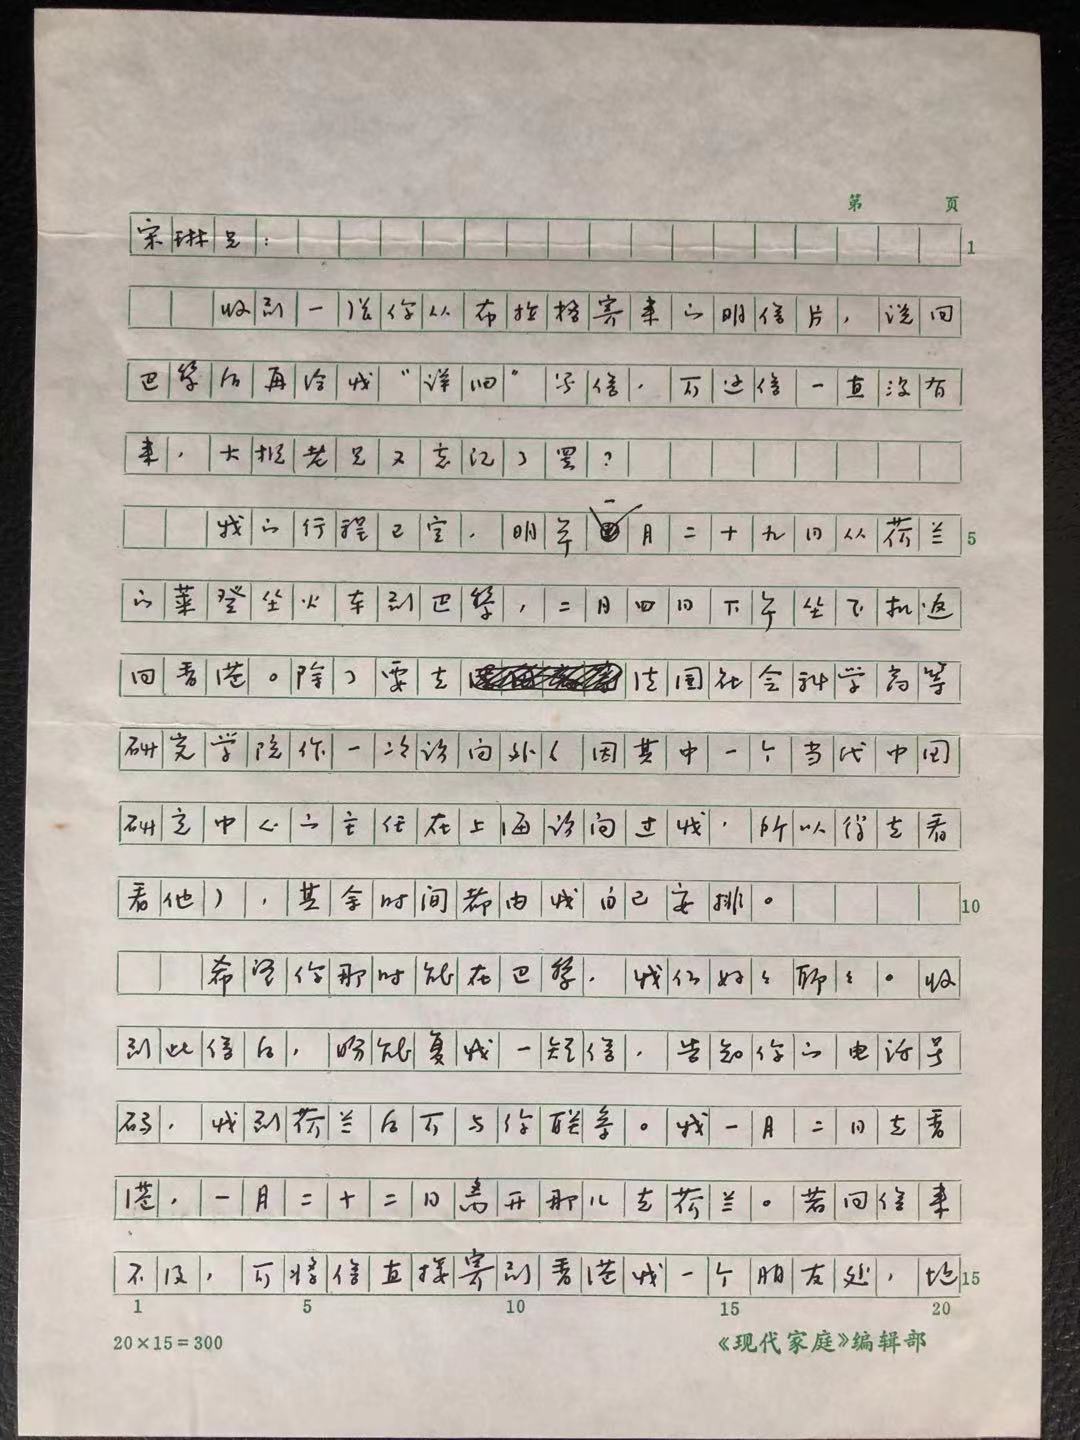 第 页
宋琳兄： 1
收到一张你从布拉格寄来的明信片，说回
巴黎后再给我“详细”写信，可这信一直没有
来，大概老兄又忘记了罢？
我的行程已定，明年一月二十九日从荷兰 5
的莱登坐火车到巴黎，二月四日下午坐飞机返
回香港。除了要去法国社会科学高等
研究学院作一次访问外（因其中一个当代中国
研究中心的主任在上海访问过我，所以得去看
看他），其余时间都由我自己安排。 10
希望你那时能在巴黎，我们好好聊聊。收
到此信后，盼能复我一短信，告知你的电话号
码，我到荷兰后可与你联系。我一月二日去香
港，一月二十二日离开那儿去荷兰。若回信来
不及，可将信直接寄到香港我一个朋友处，地 15
1 5 10 15 20
20×15=300 《现代家庭》编辑部